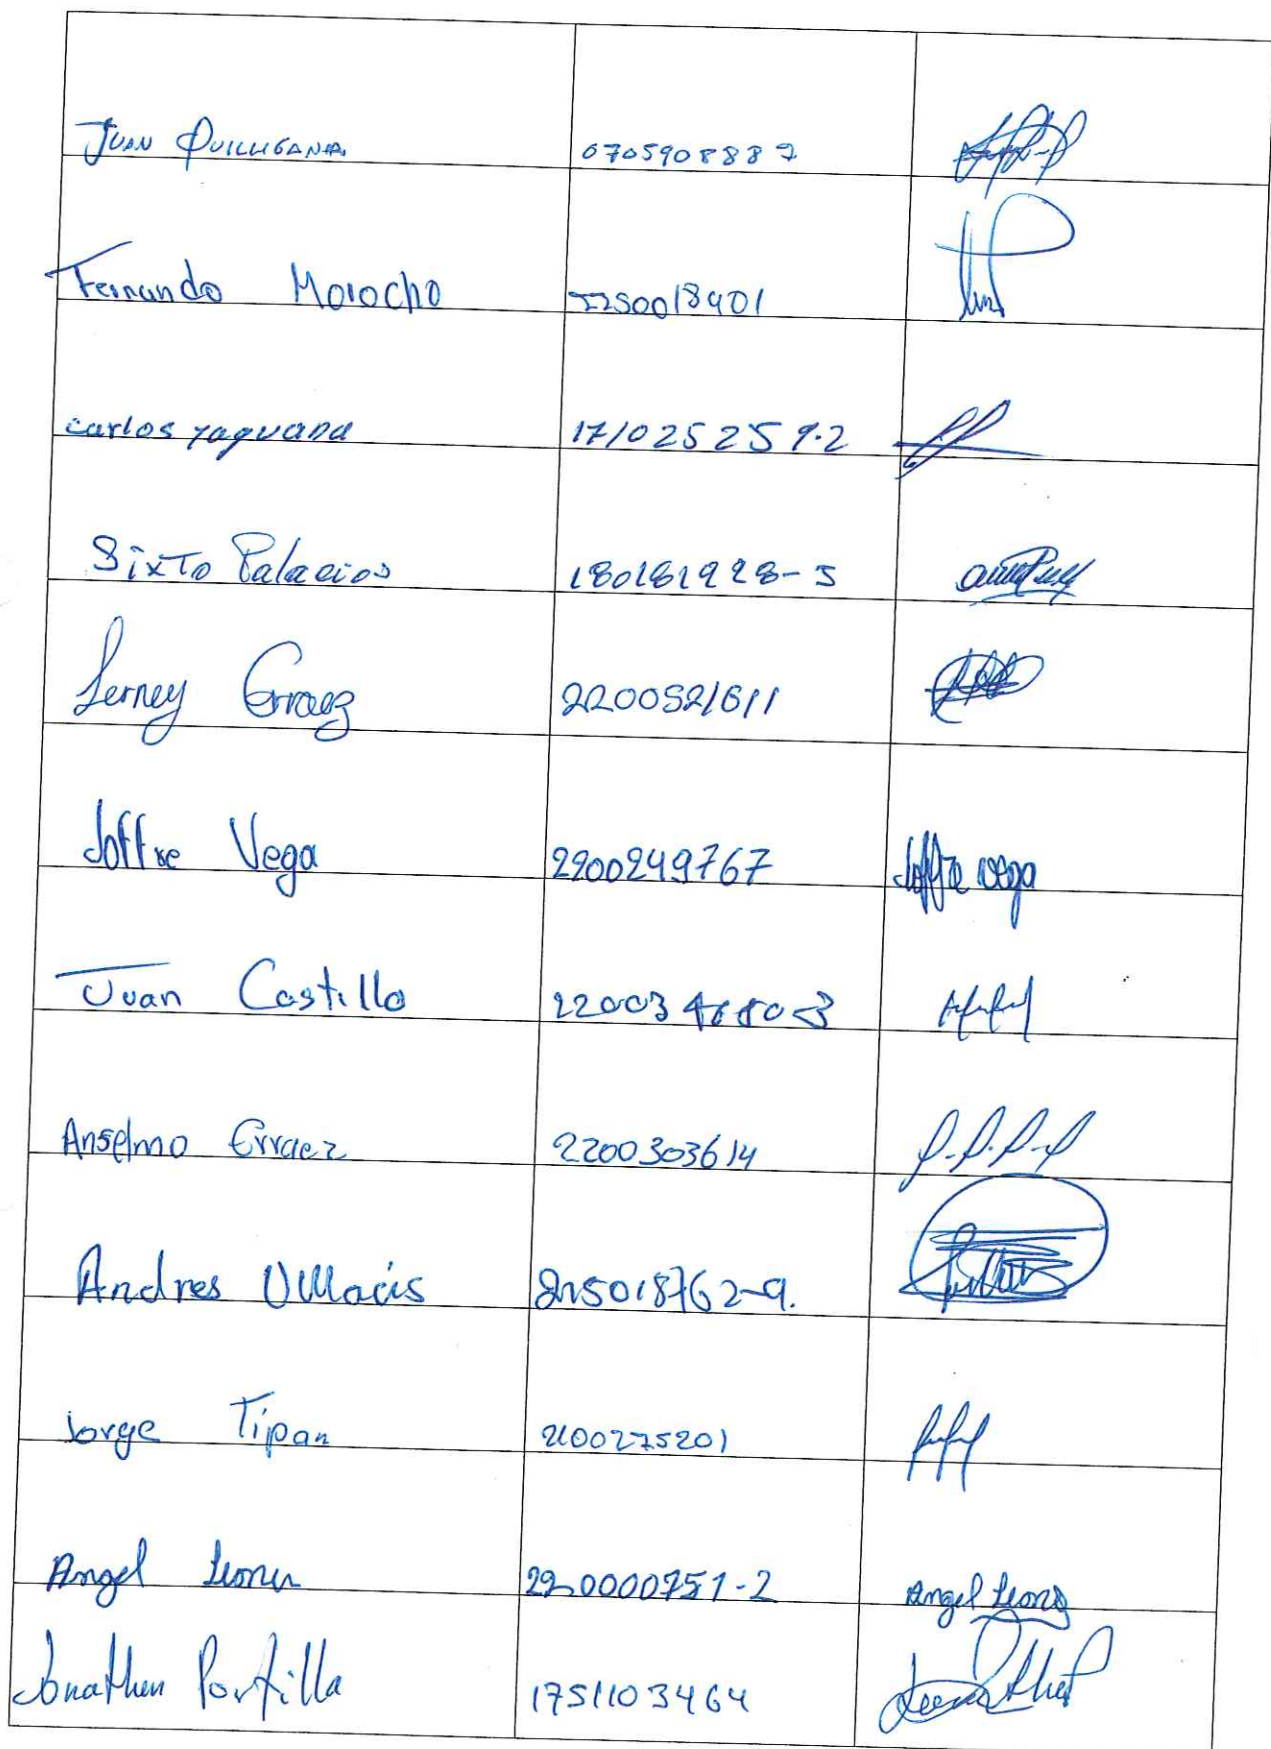 JUAN QUILLIGANA 0705908887
Fernando Morocho 2250018401
carlos yaguana 171025259-2
Sixto Palacios 180181928-5
Lerney Erraez 2200521611
Joffre Vega 2200249767
Joffre vega
Juan Castillo
Anselmo Erraez 2200303614
Andres
Jorge Tipan 2100275201
Angel 220000751-2
Angel
Jonathan Portilla 1751103464